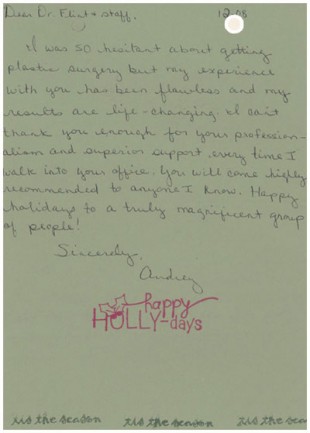 Dear Dr. Eliot & staff, 12-08
I was so hesitant about getting
plastic surgery but my experience
with you has been flawless and my
results are life-changing. I can't
thank you enough for your profession-
alism and superior support every time I
walk into your office. You will come highly
recommended to anyone I know. Happy
holidays to a truly magnificent group
of people!
Sincerely,
Audrey
happy
HOLLY-days
tis the season tis the season tis the season